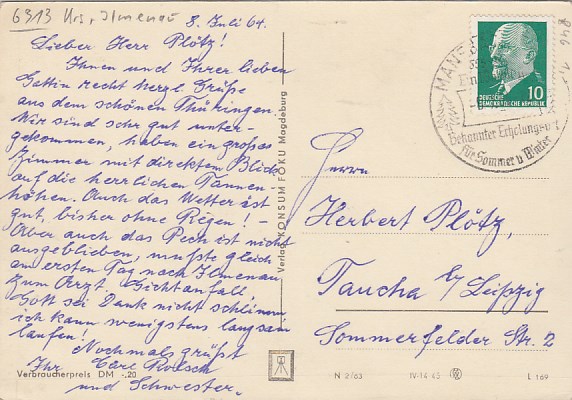 6313 Krs. Ilmenau
8. Juli 64.
Lieber Herr Plötz!
Ihnen und Ihrer lieben
Gattin recht herzl. Grüße
aus dem schönen Thüringen.
Wir sind sehr gut unter-
gekommen, haben ein großes
Zimmer mit direktem Blick
auf die herrlichen Tannen-
höhen. Auch das Wetter ist
gut, bisher ohne Regen! -
Aber auch das Pech ist nicht
ausgeblieben, mußte gleich
am ersten Tag nach Ilmenau
zum Arzt. Gichtanfall,
Gott sei Dank nicht schlimm,
ich kann wenigstens langsam
laufen!
Nochmals grüßt
Ihr
und Schwester.
Verbraucherpreis DM -.20
Verlag KONSUM FOKU Magdeburg
10
DEUTSCHE
DEMOKRATISCHE REPUBLIK
MANE
Bekannter Erholungsort
für Sommer u. Winter
Herrn
Herbert Plötz,
Taucha b/ Leipzig
Sommerfelder Str. 2
N 2/63
IV-14-45
L 169